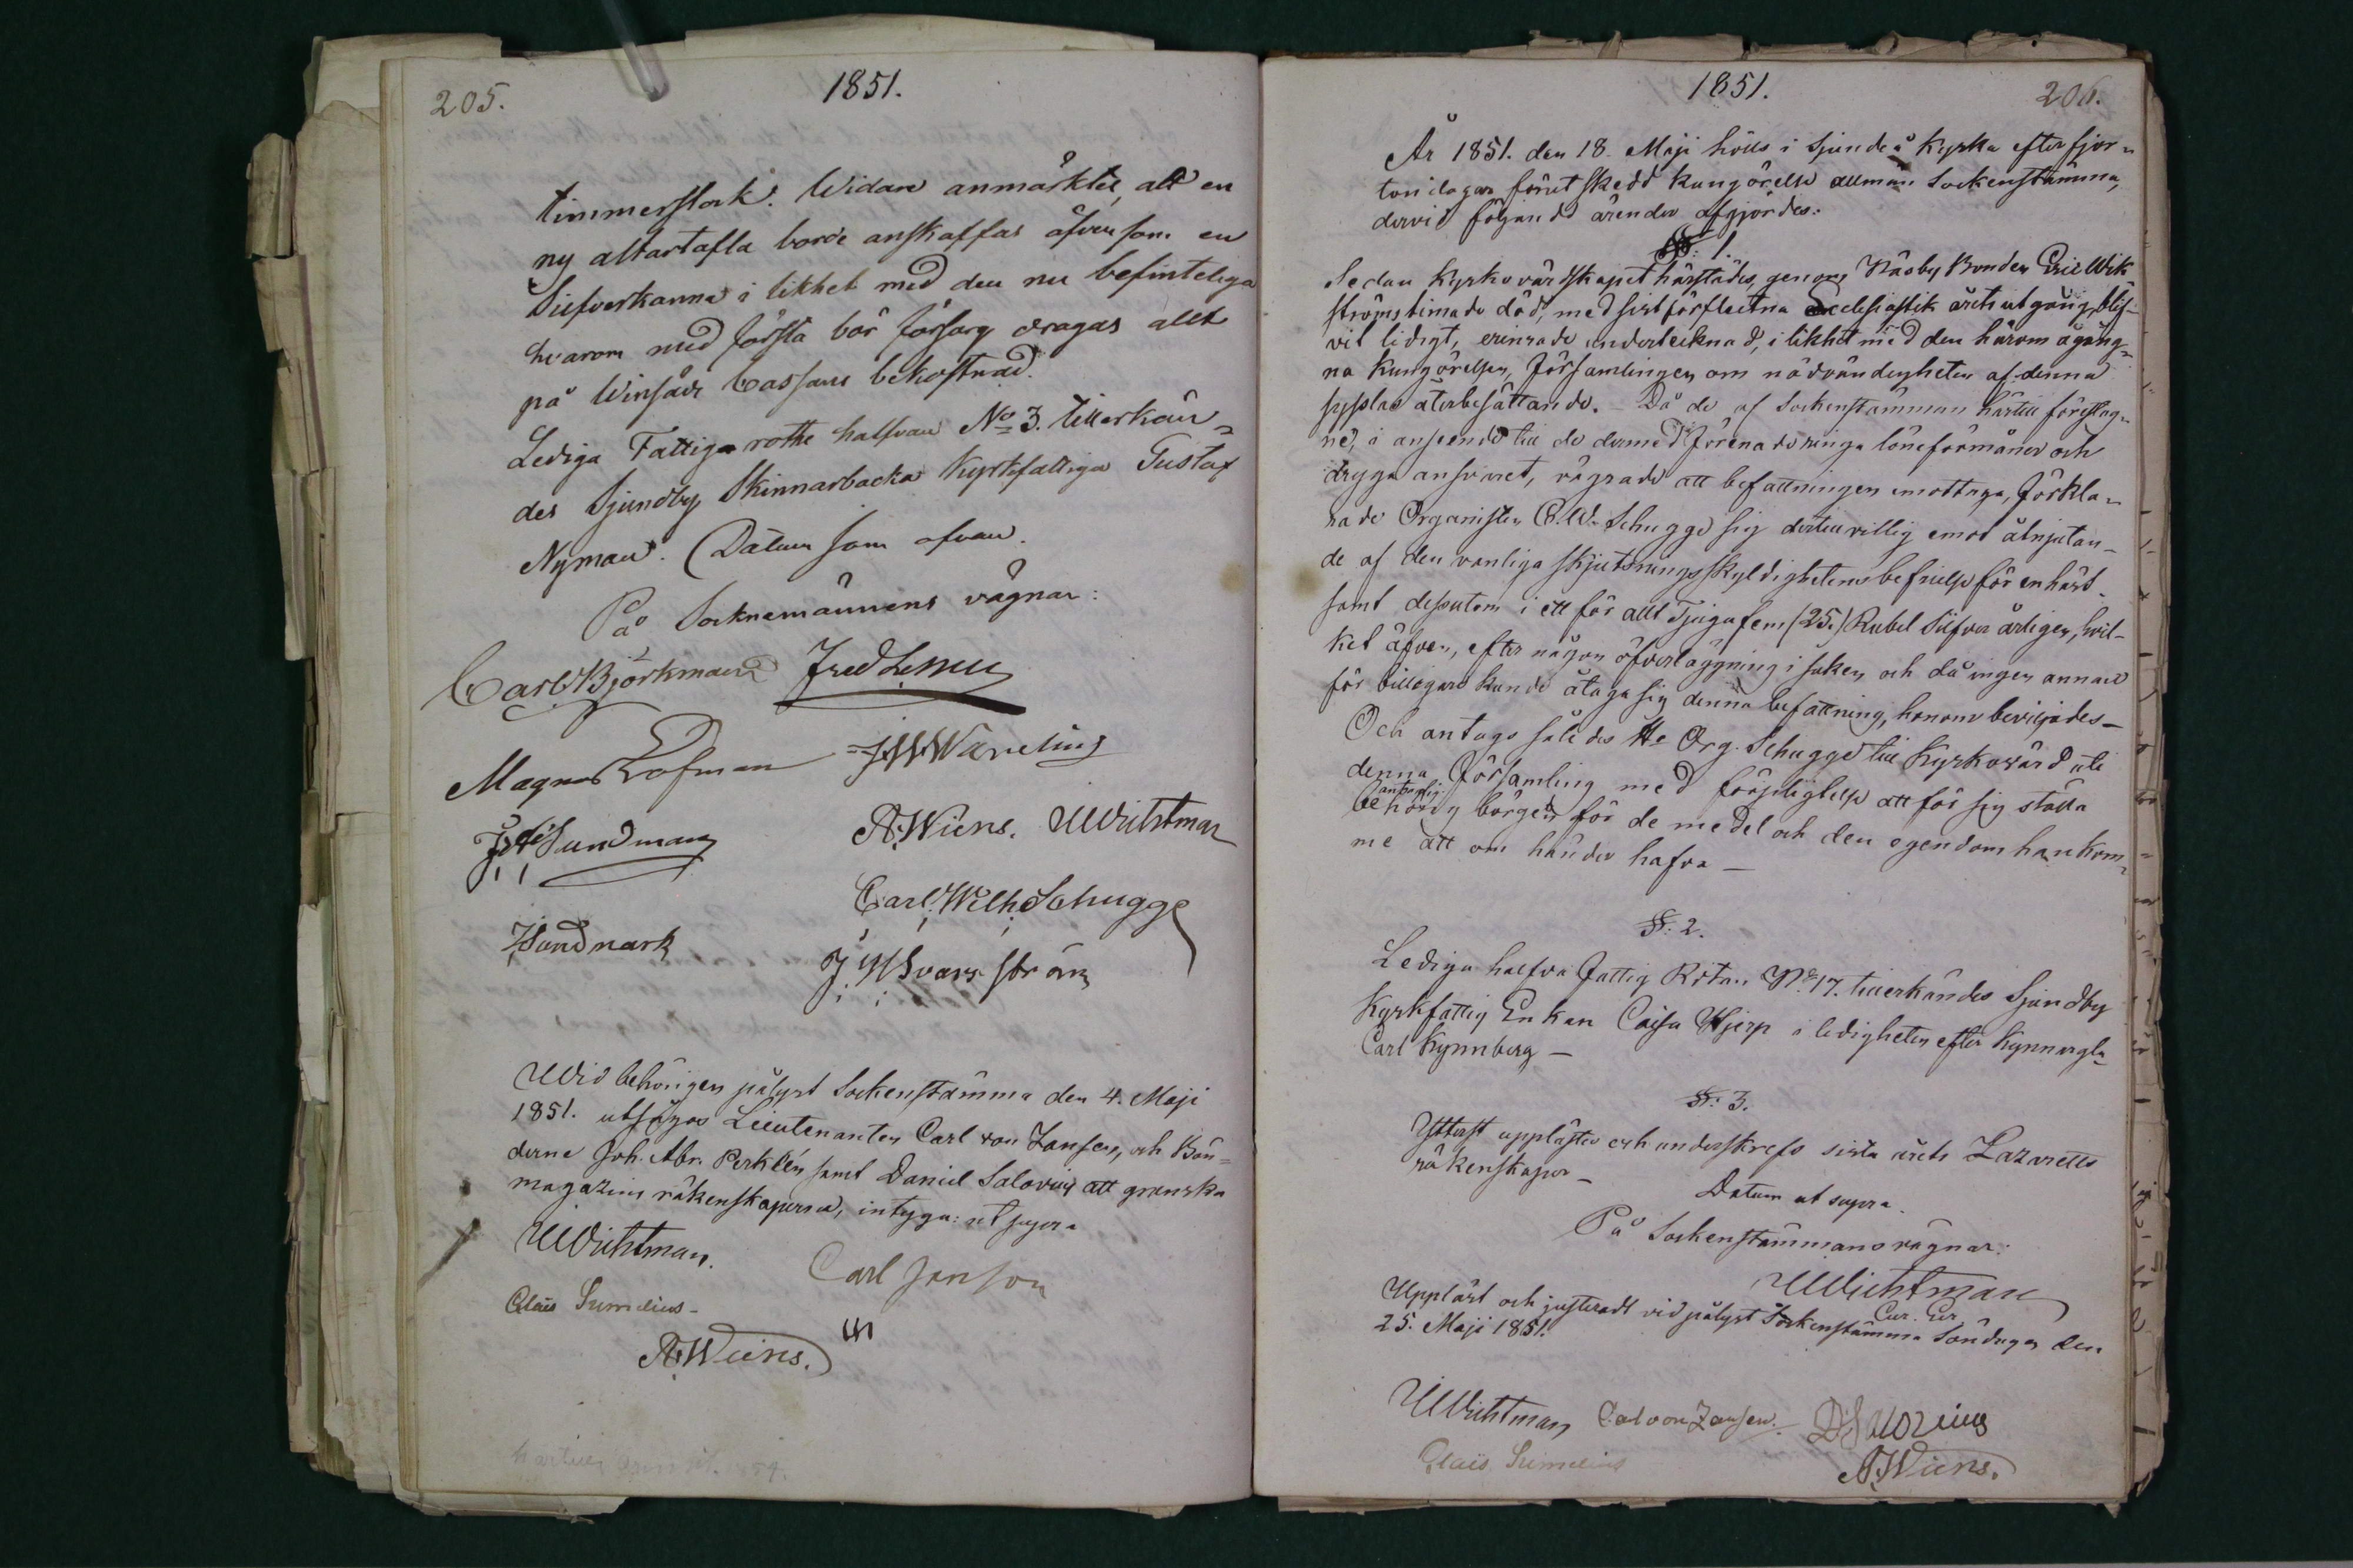 205.
1851.
timmerstock. Widare anmärktes, att en
ny altartafla borde anskaffas äfvensom en
Silfverkanna i likhet med den nu befinteliga
hvarom med första bör försorg dragas allt
på Winsåår Cassans bekostnad.
Lediga Fattige rothe halfvan No 3. tillerkän=
des Sjundby Skinnarbacka Kyrkfattiga Gustaf
Nyman. Datum som ofvan.
På Socknemännens vägnar:
Carl Björkman Fred Lemu
Magnus Lofman J W Wareling
A. Wiens. UWichtman
J Sundman
Carl. Wilh. Schugge
JSundmark
J. W Svarsström
Wid behörigen pålyst Sockenstämma den 4. Maji
1851. utsågos Lieutenanten Carl von Zansen, och Bön=
derne Joh. Abr. Perklén samt Daniel Salovius att granska
magazins räkenskaperna, intyga: ut supra
UWichtman.
Carl Janson
Claës Sumelius-
A. Wiens.
1851.
206.
År 1851. den 18. Maji hölls i Sjundeå Kyrka efter fjor=
ton dagar förut skedd kungörelse allmän Sockenstämma,
dervid följande ärender afgjordes:
§: 1.
Sedan Kyrkovärdskapet härstädes, genom Näsby Bonden Eric Wik
ströms timade död, med sist förflutna Ecclesiastik årets utgång, blif-
vit ledigt, erinrade undertecknad, i likhet med den härom ågång=
na Kungörelsen, Församlingen om nödvändigheten af denna
syßlas återbesättande. - Då de af Sockenstämman härtill föreslag=
ne, i anseende till de dermed förenade ringa löneförmåner och
dryga ansvaret, vägrade att befattningen emottaga, förkla=
rade Organisten C. W. Schugge sig dertill villig emot åtnjutan-
de af den vanliga skjutsningsskyldighetens befrielse för en häst
samt dessutom i ett för allt Tjugufem (25.) Rubel Silfver årligen, hvil-
ket äfven, efter någon öfverläggning i saken och då ingen annan
för billigare kunde åtaga sig denna befattning, honom beviljades -
Och antogs således Hr Org. Schugge till Kyrkovärd uti
denna Församling med förpligtelse att för sig ställa
behörig borgen för de medel och den egendom han kom=
me att om händer hafva -
§: 2.
Lediga halfva Fattig Rotan No 17. tillerkändes Sjundby
Kyrkfattig Enkan Caisa Hjerp i ledigheten efter Kynnargla-
Carl Kynnberg -
§: 3.
Ytterst upplästes och underskrefs sista årets Lazaretts
räkenskaper -
Datum ut supra.
På Sockenstämmans vägnar:
UWichtman
Cur. Eccl.
Uppläst och justeradt vid pålyst Sockenstämma Söndagen den
25. Maji 1851.
UWichtman Carl von Zansen. D. Salovius
Claës Sumelius
A. Wiens.